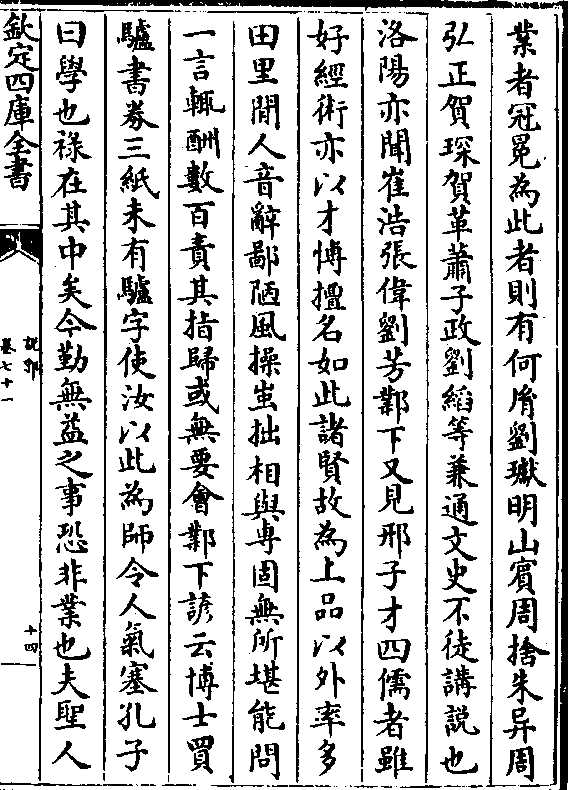 業者冠冕為此者則有何㣧劉瓛明山賓周捨朱异周
弘正賀琛賀革蕭子政劉縚等兼通文史不徒講説也
洛陽亦聞崔浩張偉劉芳鄴下又見邢子才四儒者雖
好經術亦以才博擅名如此諸賢故為上品以外率多
田里間人音辭鄙陋風操蚩拙相與専固無所堪能問
一言輒酬數百責其指歸或無要會鄴下諺云博士買
驢書券三紙未有驢字使汝以此為師令人氣塞孔子
曰學也祿在其中矣今勤無益之事恐非業也夫聖人
欽定四庫全書
說郛
卷七十一
十四